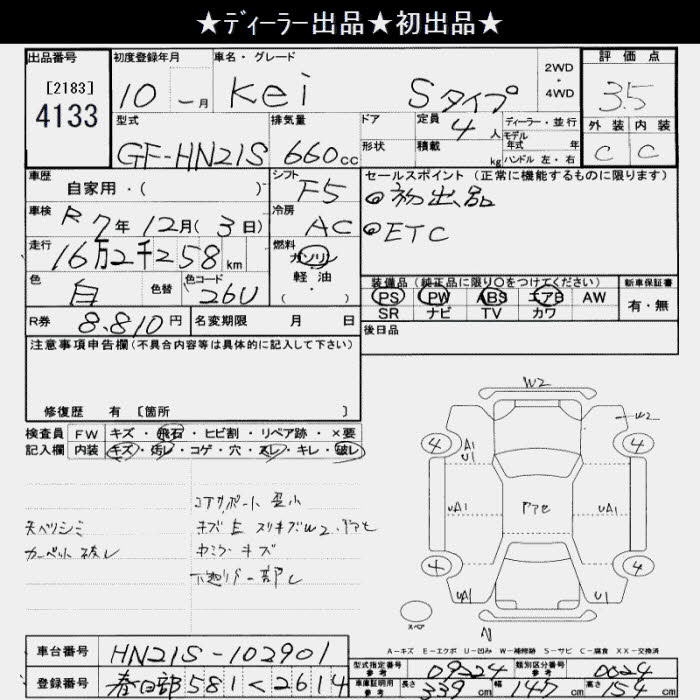 ★ディーラー出品★初出品★
出品番号 初度登録年月 車名・グレード 2WD・4WD 評価点
[2183] 4133 10 年 月 Kei Sタイプ 3.5
型式 排気量 ドア 定員 ディーラー・並行 外装 内装
GF-HN21S 660cc 形状 4人 モデル年式 年 C C
積載 kg ハンドル 左・右
車歴 シフト セールスポイント（正常に機能するものに限ります）
自家用・( ) F5 ◎初出品
車検 R7年12月(3日) 冷房 AC ◎ETC
走行 16万2千258km 燃料 ガソリン 軽油 ・( )
色 白 色替 色コード 26U
装備品（純正品に限り○をつけてください） 新車保証書
PS PW ABS エアB AW 有・無
SR ナビ TV カワ
R券 8,810円 名変期限 月 日 後日品
注意事項申告欄（不具合内容等は具体的に記入して下さい）
修復歴 有 [箇所 ]
検査員 FW キズ・飛石・ヒビ割・リペア跡・×要
記入欄 内装 キズ・汚レ・コゲ・穴・スレ・キレ・破レ
コアサポート 歪小
天ベリシミ キズ E スリキズW2、アセ
カーペット 破レ
下廻リサ一部し
W2
W2
4 A1 U1 4
UA1 アアセ UA1
4 4
UA1 U1
スペア
A－キズ E－エクボ U－凹み W－補修跡 S－サビ C－腐食 XX－交換済
車台番号 HN21S-102901
登録番号 春日部581く2614
型式指定番号 参考 09224 類別区分番号 参考 0024
車庫証明用 参考 長さ 339cm 幅 147cm 高さ 154cm